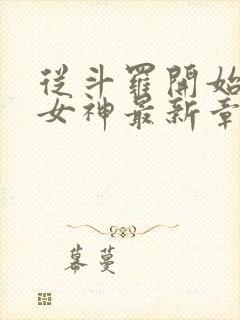 從斗羅開始
女神最新章
幕蔓